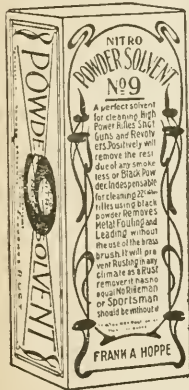 NITRO
POWDER SOLVENT
No 9
A perfect solvent
for cleaning High
Power Rifles Shot
Guns and Revolv
ers. Positively will
remove the resi
due of any smoke
less or Black Pow
der. Indespensable
for cleaning 22 Calibre
rifles using black
powder Removes
Metal Fouling and
Leading without
the use of the brass
brush. It will pre
vent Rusting in any
climate as a Rust
remover it has no
equal No Rifleman
or Sportsman
should be without it
FRANK A HOPPE
POWDER SOLVENT